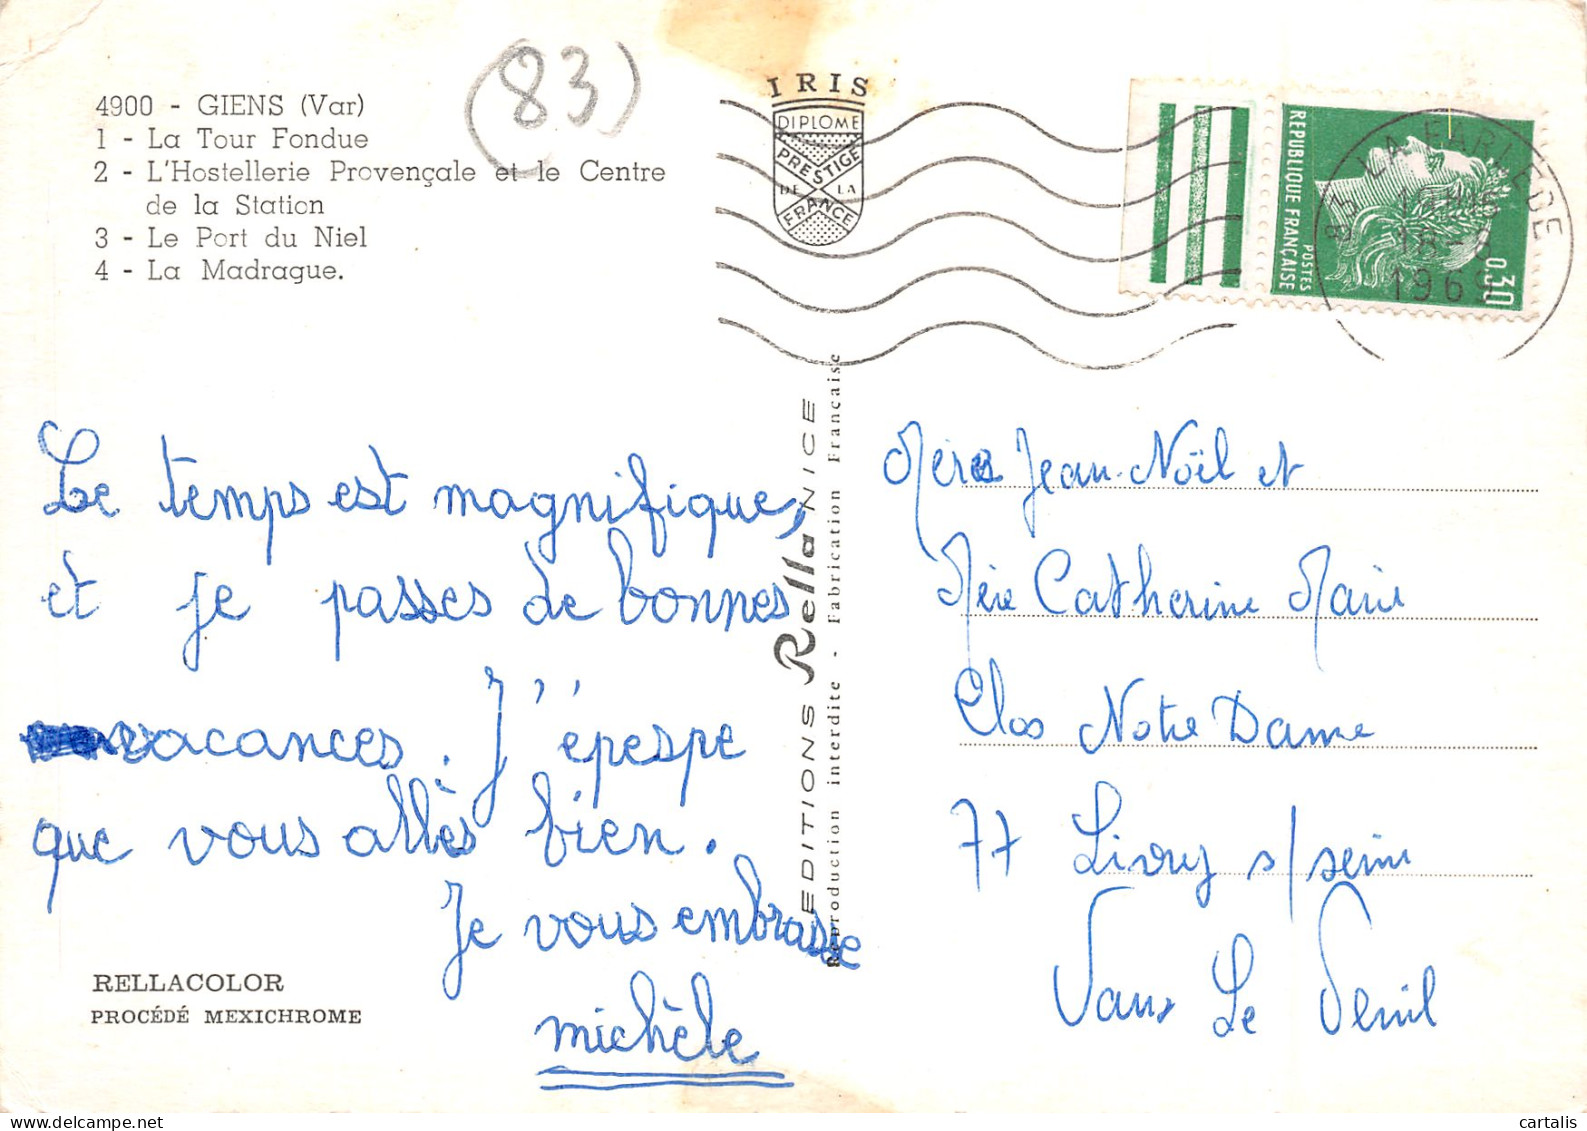 4900 - GIENS (Var)
1 - La Tour Fondue
2 - L'Hostellerie Provençale et le Centre
de la Station
3 - Le Port du Niel
4 - La Madrague.
(83)
IRIS
DIPLOME
PRESTIGE
DE LA
FRANCE
REPUBLIQUE FRANÇAISE
POSTES
0,30
83 LA FARLEDE
18-8
1969
Le temps est magnifique,
et je passes de bonnes
vacances. J'épespe
que vous allès bien.
Je vous embrasse
michèle
RELLACOLOR
PROCÉDÉ MEXICHROME
EDITIONS Rella NICE
Reproduction interdite - Fabrication Française
Mères Jean-Noël et
Mère Catherine Marie
Clos Notre Dame
77 Livry s/seine
Vaux Le Penil
cartalis